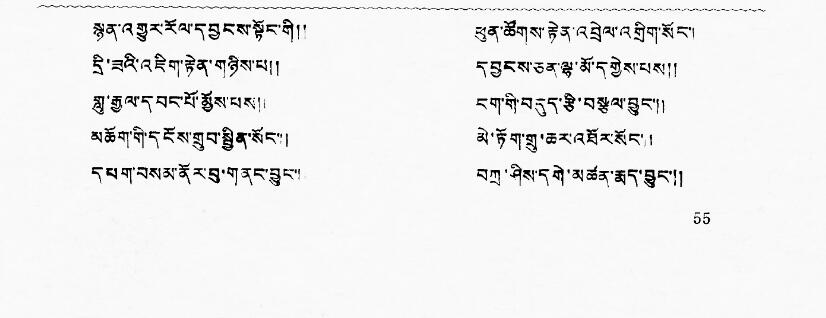 སྙན་འགྱུར་རོལ་དབྱངས་སྟོང་གི།།	ཕུན་ཚོགས་རྟེན་འབྲེལ་འགྲིག་སོང་།
དྲི་ཟའི་འཇིག་རྟེན་གཉིས་པ།།	དབྱངས་ཅན་ལྷ་མོ་དགྱེས་པས།།
ཀླུ་རྒྱལ་དབང་པོ་མྱོས་པས།།	ངག་གི་བདུད་རྩི་བསྩལ་བྱུང་།།
མཆོག་གི་དངོས་གྲུབ་སྦྱིན་སོང་།།	མེ་ཏོག་གྲུ་ཆར་འཐོར་སོང་།།
དཔག་བསམ་ནོར་བུ་གནང་བྱུང་།	བཀྲ་ཤིས་དགེ་མཚན་རྨད་བྱུང་།།
55